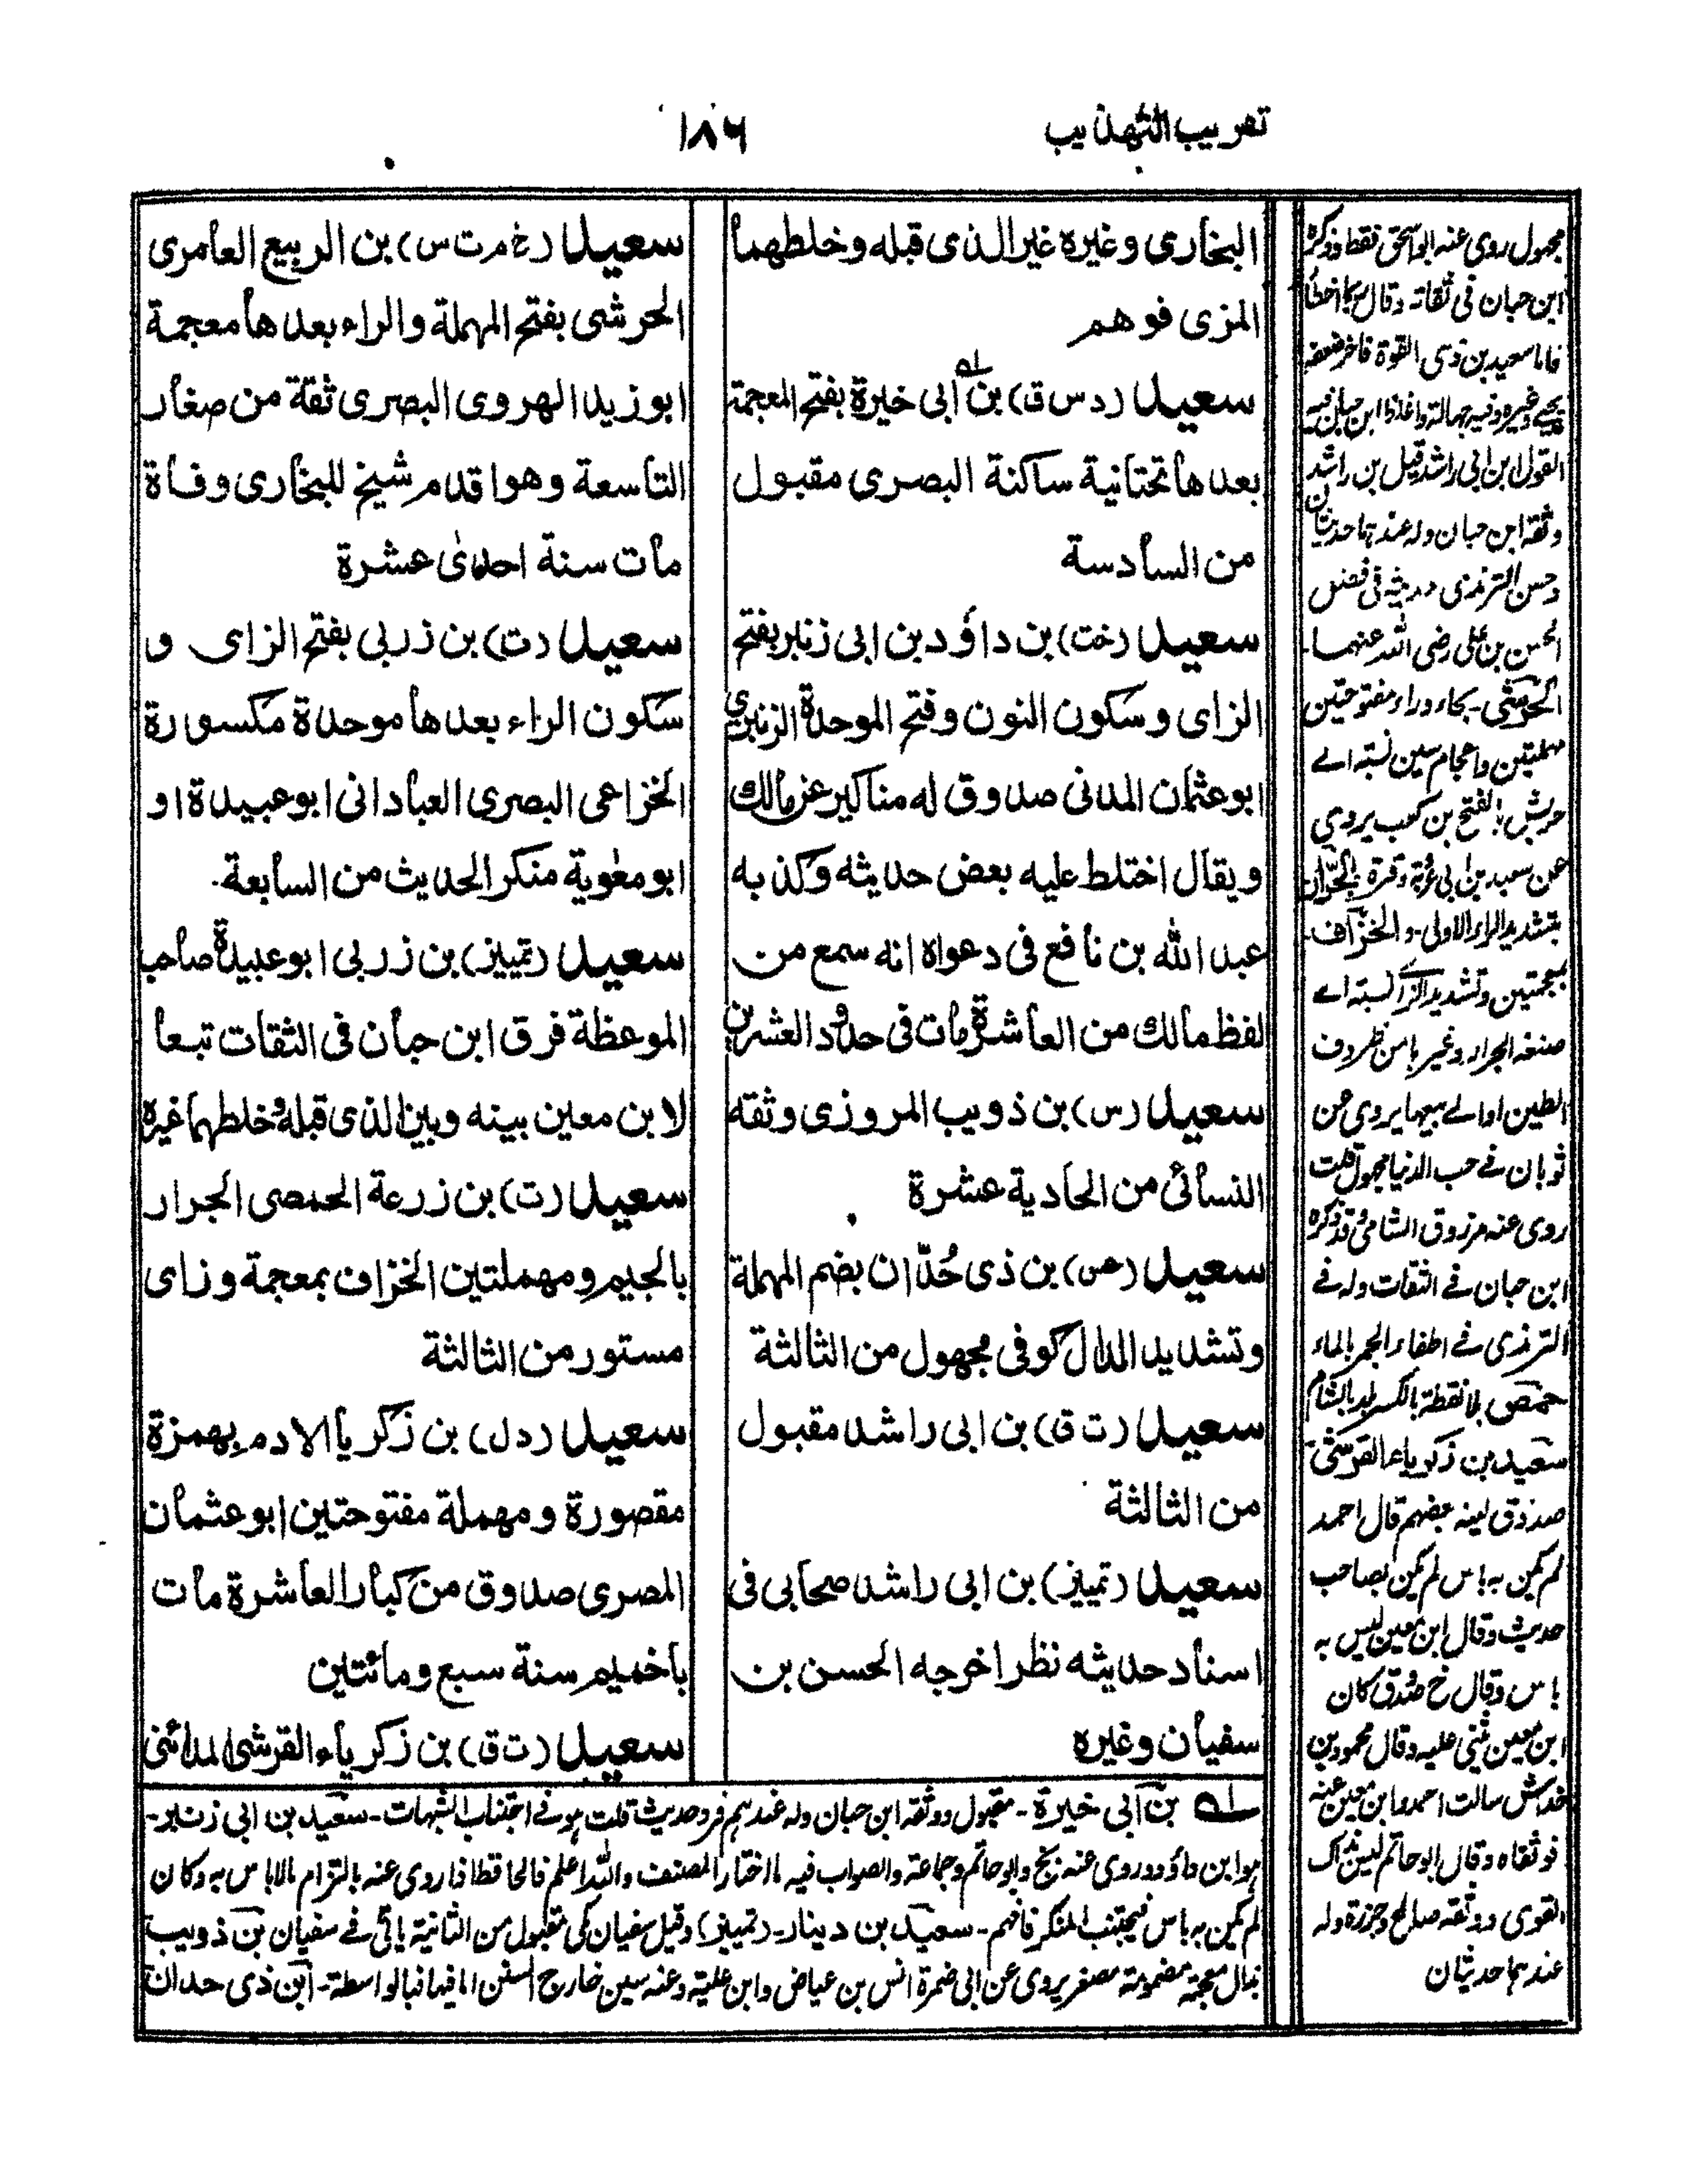 تقريب التهذيب
١٨٦
البخاري وغيره غير الذي قبله وخلطهما
المزي فوهم
سعيد (د س ق) بن ابي خيرة بفتح المعجمة
بعدها تحتانية ساكنة البصري مقبول
من السادسة
سعيد (خت) بن داؤد بن ابي زنبر بفتح
الزاي وسكون النون وفتح الموحدة الزنبري
ابو عثمان المدني صدوق له مناكير عن مالك
ويقال اختلط عليه بعض حديثه وكذبه
عبد الله بن نافع في دعواه انه سمع من
لفظ مالك من العاشرة مات في حدود العشرين
سعيد (س) بن ذويب المروزي وثقه
النسائي من الحادية عشرة
سعيد (عس) بن ذي حُدّان بضم المهملة
وتشديد الدال كوفي مجهول من الثالثة
سعيد (ت ق) بن ابي راشد مقبول
من الثالثة
سعيد (تمييز) بن ابي راشد صحابي في
اسناد حديثه نظر اخرجه الحسن بن
سفيان وغيره
سعيد (خ م ت س) بن الربيع العامري
الحرشي بفتح المهملة والراء بعدها معجمة
ابو زيد الهروي البصري ثقة من صغار
التاسعة وهو اقدم شيخ للبخاري وفاة
مات سنة احدى عشرة
سعيد (ت) بن زربي بفتح الزاي و
سكون الراء بعدها موحدة مكسورة
الخزاعي البصري العباداني ابو عبيدة او
ابو معٰوية منكر الحديث من السابعة.
سعيد (تمييز) بن زربي ابو عبيدة صاحب
الموعظة فرق ابن حبان في الثقات تبعا
لابن معين بينه وبين الذي قبله وخلطهما غيره
سعيد (ت) بن زرعة الحمصي الجرار
بالجيم ومهملتين الخزاف بمعجمة وزاي
مستور من الثالثة
سعيد (د ل) بن زكريا الادم بهمزة
مقصورة ومهملة مفتوحتين ابو عثمان
المصري صدوق من كبار العاشرة مات
باخميم سنة سبع ومائتين
سعيد (ت ق) بن زكرياء القرشي المدائني
مجهول روى عنه ابو اسحق فقط وذكره
ابن حبان في ثقاته وقال ربما اخطأ
فاما سعيد بن ذي القوة فاخر ضعفه
يحيى وغيره وفيه جهالة
القول ابن ابي راشد قيل بن راشد
وثقه ابن حبان وله عندهما حديثان
وحسن الترمذي حديثه في فضل
الحسن بن علي رضي الله عنهما
الحرشي - بحاء وراء مفتوحتين
مهملتين واعجام سين نسبته الے
حرش بالفتح بن كعب يروي
عن سعيد بن ابي عروبة وقرة الجرار
بتشديد الراء الاولى - والخزاف
بمعجمتين وتشديد الزاء نسبته اے
صنعه الجرار وغيرها من ظروف
الطين او الے بيعها يروي عن
ثوبان فے حب الدنيا مجهول قلت
روى عنه مرزوق الشامي وقد ذكره
ابن حبان فے الثقات وله فے
الترمذي فے اطفاء الحمر بالماء
حمص بلا نقطة بالكسر بلد بالشام
سعيد بن زكرياء القرشي
صدوق لينه بعضهم قال احمد
لم يكن به باس لم يكن بصاحب
حديث وقال ابن معين ليس به
باس وقال خ صدوق كان
ابن معين يثني عليه وقال محمود بن
خداش سالت احمد وابن معين عنه
فوثقاه وقال ابو حاتم ليس بذاك
القوي ووثقه صالح جزرة وله
عندهما حديثان
ـلـه بن ابي خيرة - مقبول ووثقه ابن حبان وله عندهم فرد حديث قلت هو فے اجتناب الشبهات - سعيد بن ابي زنبر -
هو ابن داؤد وروى عنه نخ وابو حاتم وجماعة والصواب فيه ما اختار المصنف والله اعلم فالحافظ اذا روى عنه بالتزام مالا باس به وكان
لم يكن به باس فيجتنب المنكر فافهم - سعيد بن دينار - (تمييز) وقيل سفيان كي مقبول من الثانية ياتي فے سفيان بن ذويب
بذال معجمة مضمومة مصغر يروي عن ابي ضمرة انس بن عياض وابن علية وعنه سين خارج السنن اما فيها فبالواسطة - ابن ذي حدان